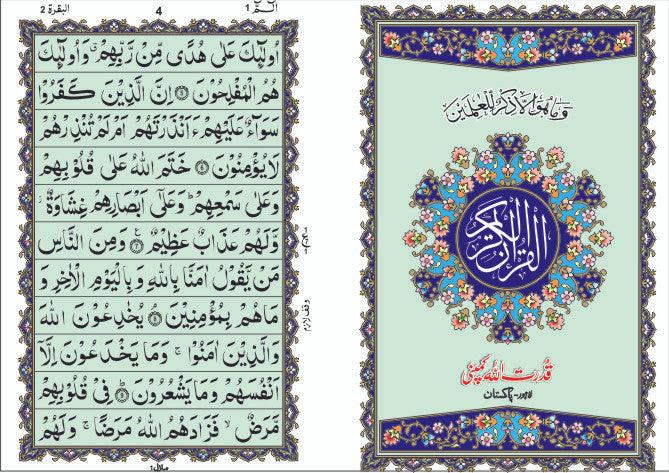 البقرة 2
4
الٓمّٓ 1
اُولٰٓئِكَ عَلٰى هُدًى مِّنْ رَّبِّهِمْ ۙ وَاُولٰٓئِكَ
هُمُ الْمُفْلِحُوْنَ ۝ اِنَّ الَّذِيْنَ كَفَرُوْا
سَوَآءٌ عَلَيْهِمْ ءَاَنْذَرْتَهُمْ اَمْ لَمْ تُنْذِرْهُمْ
لَا يُؤْمِنُوْنَ ۝ خَتَمَ اللّٰهُ عَلٰى قُلُوْبِهِمْ
وَعَلٰى سَمْعِهِمْ ؕ وَعَلٰٓى اَبْصَارِهِمْ غِشَاوَةٌ ۫
وَّلَهُمْ عَذَابٌ عَظِيْمٌ ۝ وَمِنَ النَّاسِ
مَنْ يَّقُوْلُ اٰمَنَّا بِاللّٰهِ وَبِالْيَوْمِ الْاٰخِرِ وَ
مَا هُمْ بِمُؤْمِنِيْنَ ۝ يُخٰدِعُوْنَ اللّٰهَ
وَالَّذِيْنَ اٰمَنُوْا ۚ وَمَا يَخْدَعُوْنَ اِلَّاۤ
اَنْفُسَهُمْ وَمَا يَشْعُرُوْنَ ۝ فِيْ قُلُوْبِهِمْ
مَّرَضٌ ۙ فَزَادَهُمُ اللّٰهُ مَرَضًا ۚ وَلَهُمْ
وقف لازم
منزل 1
وَمَا هُوَ اِلَّا ذِكْرٌ لِّلْعٰلَمِيْنَ
القرآن الكريم
قدرت اللہ کمپنی
لاہور - پاکستان